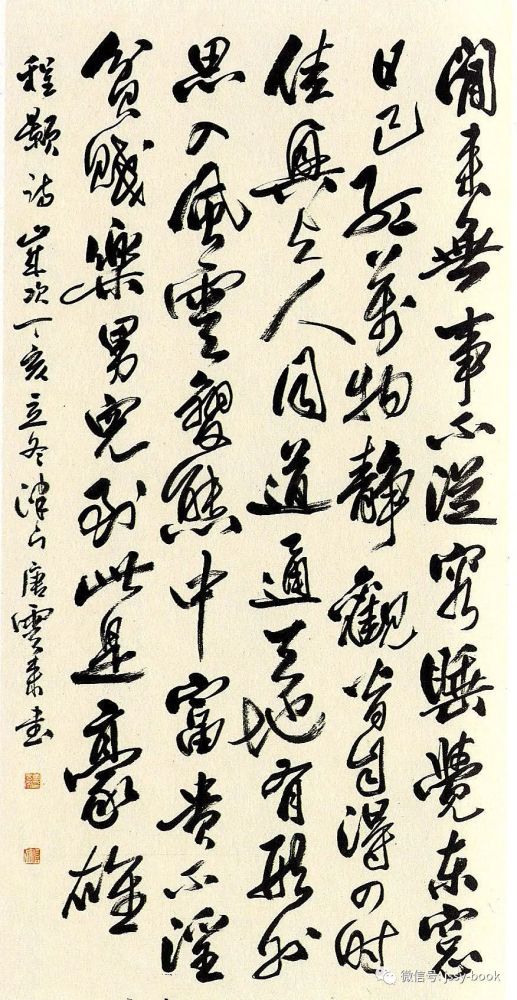 閒来無事不從容睡覺东窓
日已红萬物静觀皆自得四时
佳興与人同道通天地有形外
思入風雲變態中富貴不淫
貧賤樂男兒到此是豪雄
程颢诗歲次丁亥立冬津门唐雲来书
微信号: jssy-book